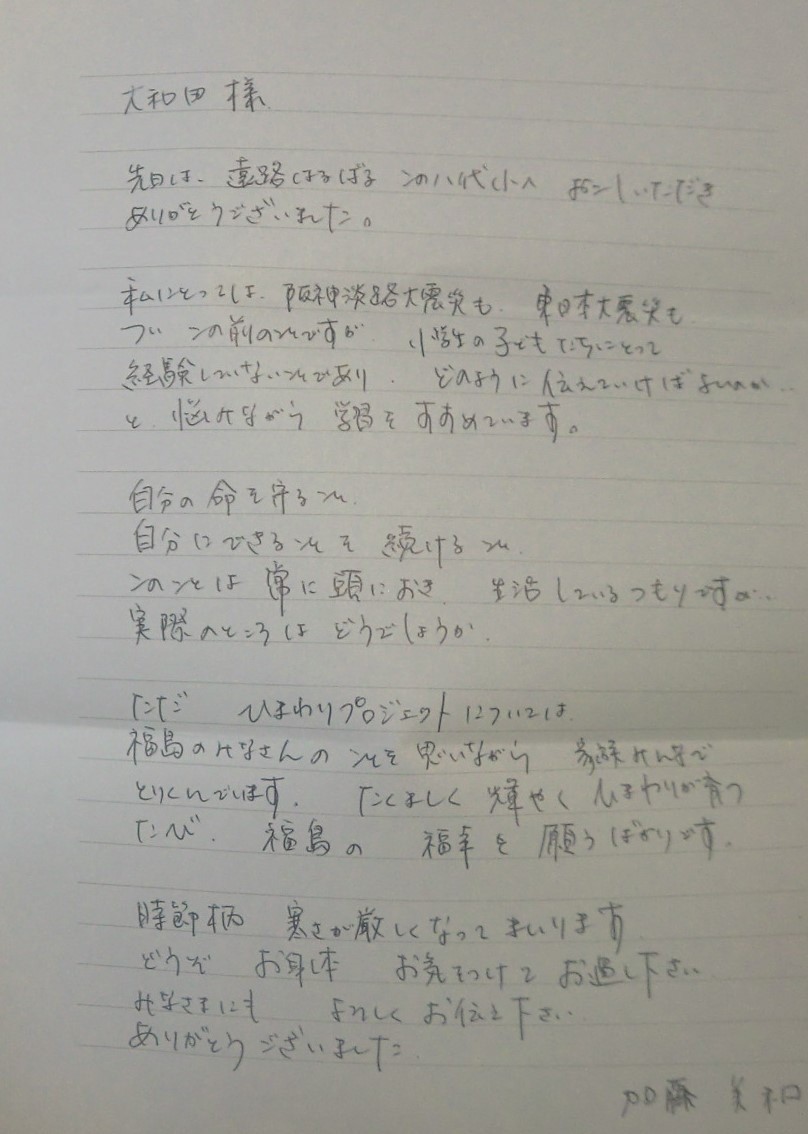 大和田 様
先日は、遠路はるばる この八代小へ おこしいただき
ありがとうございました。
私にとっては、阪神淡路大震災も、東日本大震災も
つい この前のことですが 小学生の子どもたちにとって
経験していないことであり、どのように伝えていけばよいのか…
と、悩みながら 学習をすすめています。
自分の命を守ること、
自分にできることを 続けること、
このことは 常に頭におき、生活しているつもりですが…
実際のところは どうでしょうか、
ただ ひまわりプロジェクトについては、
福島のみなさんのことを思いながら 家族みんなで
とりくんでいます、 たくましく 輝やく ひまわりが育つ
たび、福島の 福幸を 願うばかりです、
時節柄 寒さが厳しくなってまいります
どうぞ お身体 お気をつけて お過し下さい
みなさまにも よろしく お伝え下さい
ありがとうございました
加藤 美和